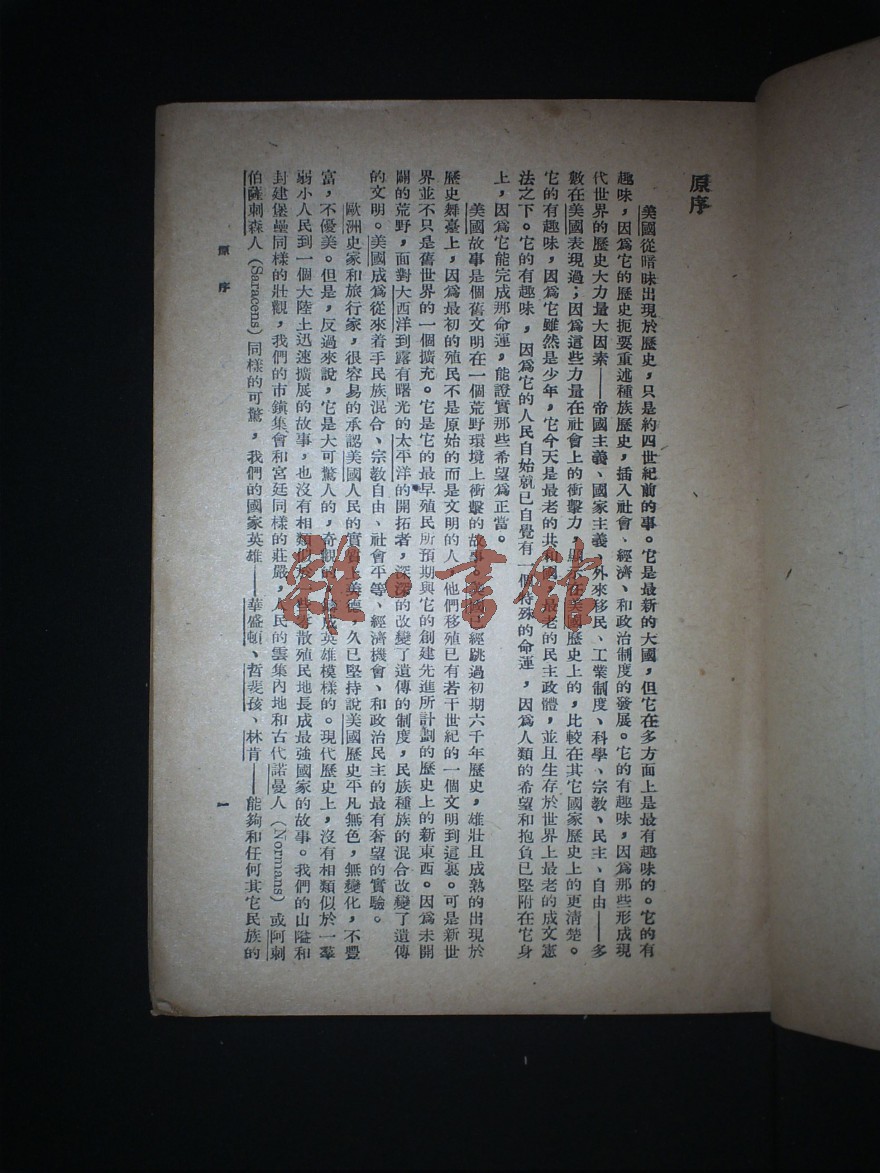 原序
美國從暗昧出現於歷史，只是約四世紀前的事。它是最新的大國，但它在多方面上是最有趣味的。它的有
趣味，因爲它的歷史扼要重述種族歷史，插入社會、經濟、和政治制度的發展。它的有趣味，因爲那些形成現
代世界的歷史大力量大因素——帝國主義、國家主義、外來移民、工業制度、科學、宗教、民主、自由——多
數在美國表現過；因爲這些力量在社會上的衝擊力，顯示在美國歷史上的，比較在其它國家歷史上的更清楚。
它的有趣味，因爲它雖然是少年，它今天是最老的共和國，最老的民主政體，並且生存於世界上最老的成文憲
法之下。它的有趣味，因爲它的人民自始就已自覺有一個特殊的命運，因爲人類的希望和抱負已堅附在它身
上，因爲它能完成那命運，能證實那些希望爲正當。
美國故事是個舊文明在一個荒野環境上衝擊的故事。美國已經跳過初期六千年歷史，雄壯且成熟的出現於
歷史舞臺上，因爲最初的殖民不是原始的而是文明的人，他們移殖已有若干世紀的一個文明到這裏。可是新世
界並不只是舊世界的一個擴充。它是它的最早殖民所預期與它的創建先進所計劃的歷史上的新東西。因爲未開
闢的荒野，面對大西洋到露有曙光的太平洋的開拓者，深深的改變了遺傳的制度，民族種族的混合改變了遺傳
的文明。美國成爲從來着手民族混合、宗教自由、社會平等、經濟機會、和政治民主的最有奢望的實驗。
歐洲史家和旅行家，很容易的承認美國人民的實質上美德，久已堅持說美國歷史平凡無色，無變化，不豐
富，不優美。但是，反過來說，它是大可驚人的，奇觀的，鑄成英雄模樣的。現代歷史上，沒有相類似於一羣
弱小人民到一個大陸上迅速擴展的故事，也沒有相類似於一些分散殖民地長成最強國家的故事。我們的山隘和
封建堡壘同樣的壯觀，我們的市鎭集會和宮廷同樣的莊嚴，人民的雲集內地和古代諾曼人（Normans）或阿剌
伯薩剌森人（Saracens）同樣的可驚，我們的國家英雄——華盛頓、哲斐孩、林肯——能夠和任何其它民族的
原序
一
雜·書館